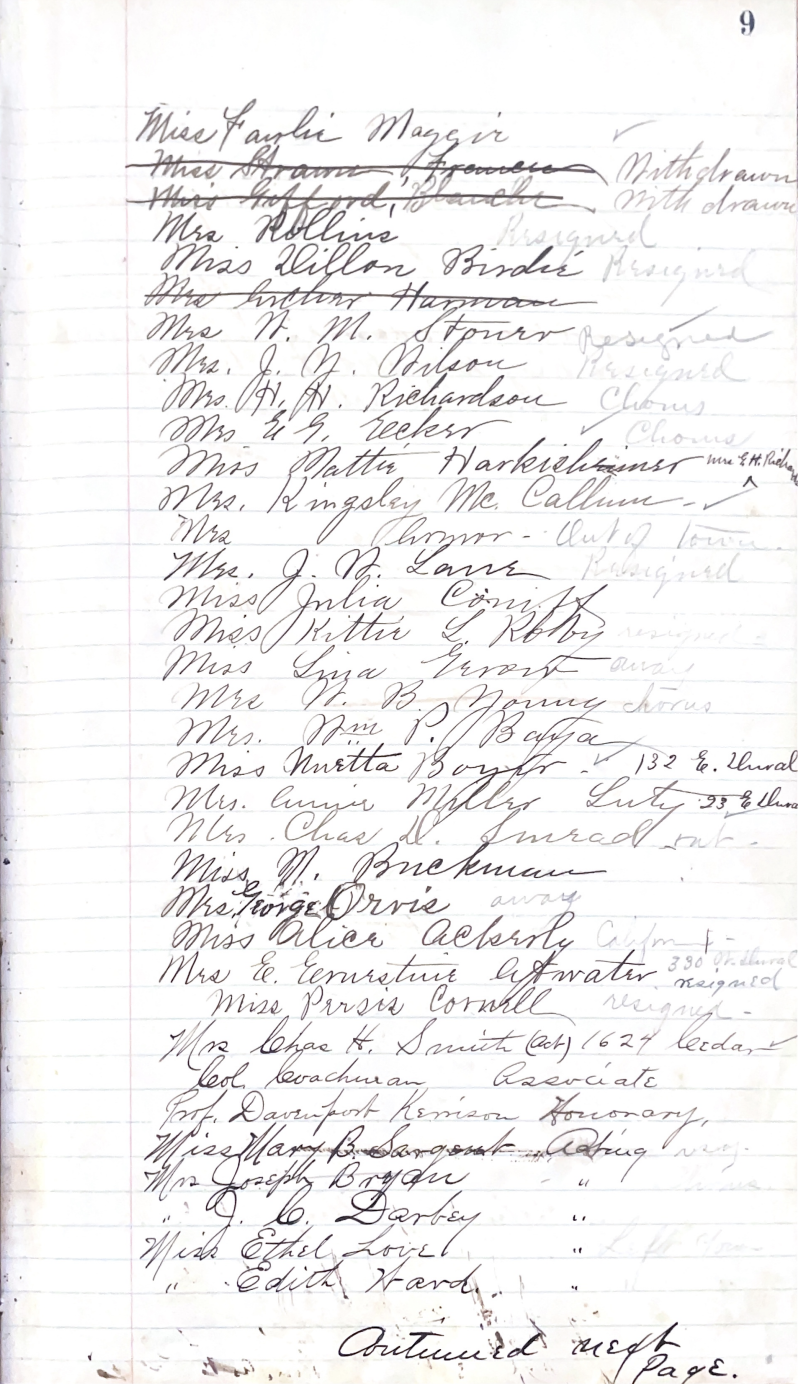 9
Miss Fanlie Maggie
Miss Strawn, Frances Withdrawn
Miss Gifford, Blanche Withdrawn
Mrs Rollins Resigned
Miss Dillon Birdie Resigned
Mrs Archer Harman
Mrs W. M. Resigned
Mrs. J. N. Wilson Resigned
Mrs. H. H. Richardson Chorus
Mrs E G. Ecker Chorus
Miss Mattie Harkisheimer Mrs E. H.
Mrs. Kingsley Mc. Callum
Mrs Out of Town.
Mrs. J. W. Lane Resigned
Miss Julia
Miss Kittie L. Roby resigned
Miss Lina away
Mrs W. B. Young chorus
Mrs. Wm P. Baya
Miss Nuetta 132 E. Duval
Mrs. Annie Miller Luty 23 E Duval
Mrs. Chas D. out -
Miss M. Buckman
Mrs. George Orvis away
Miss Alice Ackerly
Mrs E. Ernestine Atwater 330 W. Duval
resigned
Miss Persis Cornell resigned -
Mrs Chas H. Smith (Act) 1624 Cedar
Col. Associate
Prof. Davenport Kerrison Honorary,
Miss Mary B. Sargent " Acting resg.
Mrs Joseph Bryan "
" J. C. Darbey "
Miss Ethel Love "
" Edith Ward. "
Continued next
Page.